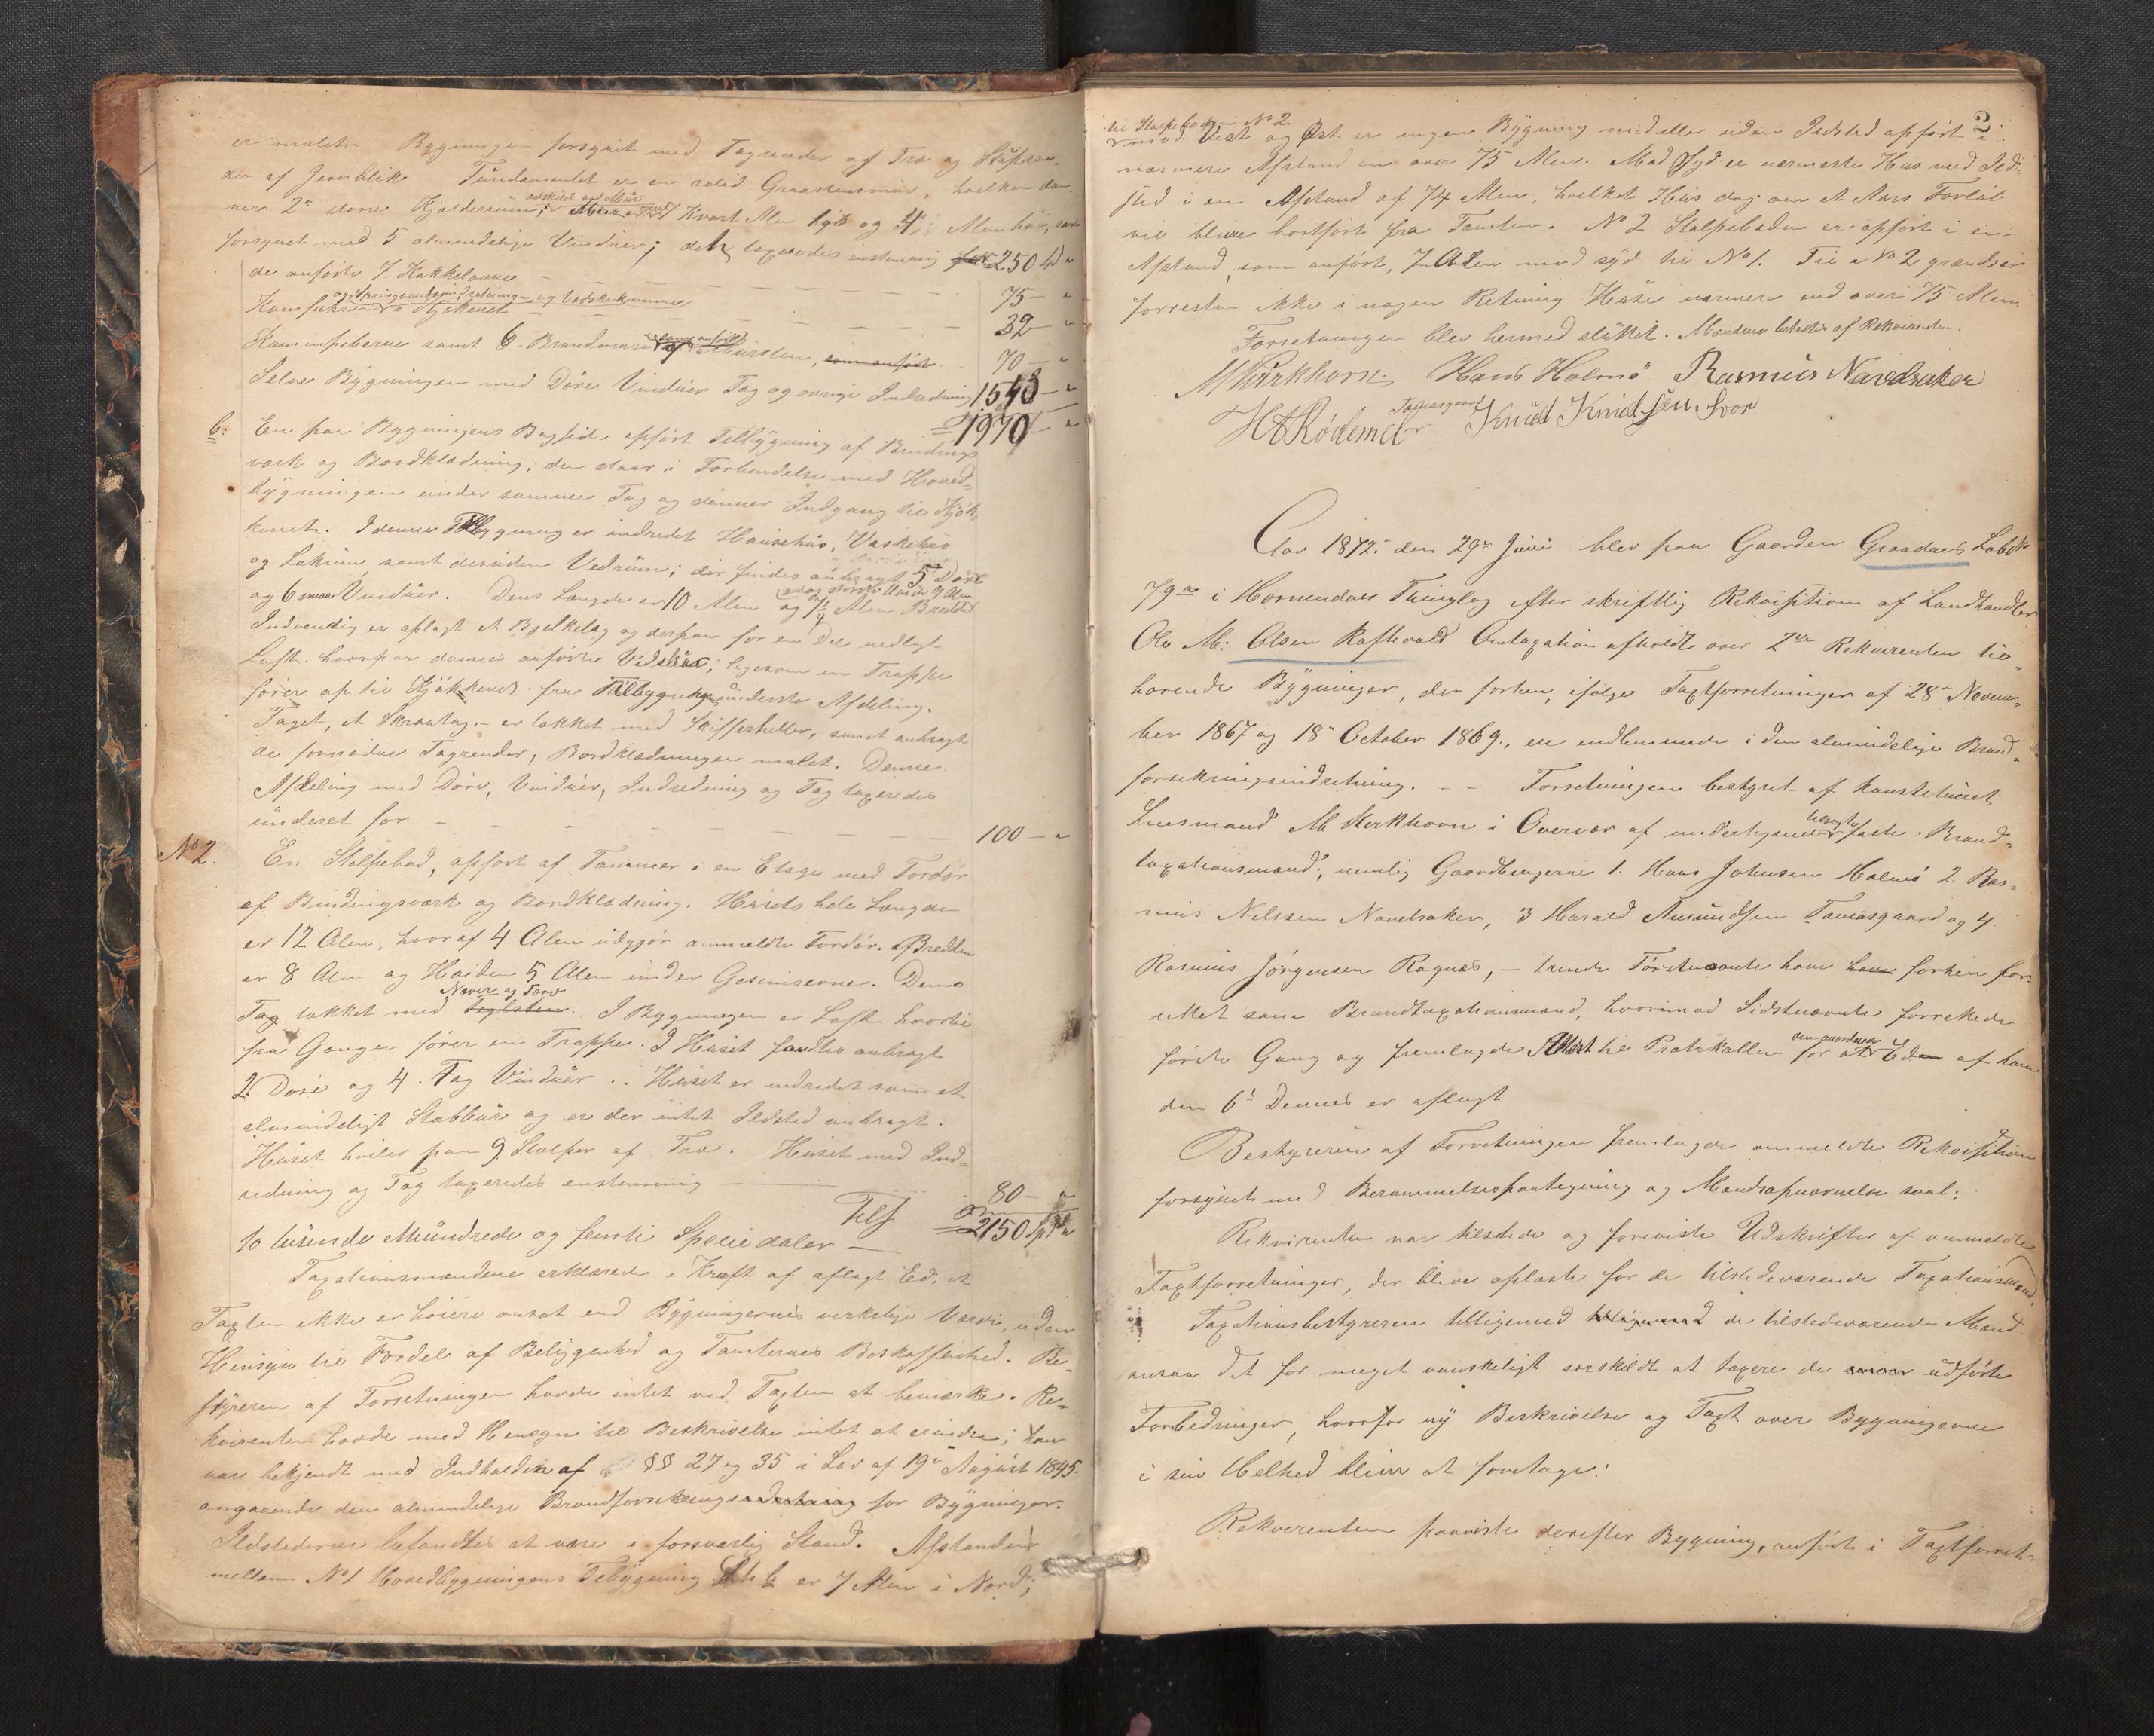 er malet. Bygningen forsynet med Tagrender af Træ og
der af Jernblik Fundamentet er en solid Graasteensmuur, hvilken dan-
ner 2de store Kjælderrum; adskildt ved Muur Kvart Alen tyk og 4 Alen høi, samt
forsynet med 5 almindelige Vinduer; det taxeredes enstemmig for 250
de anførte 7. Kakkelovne — 75 — "
Komfuhren i Kjøkkenet og Vaskekumme — 32 — "
Kammpiberne samt 6. Brandmure af Muursten, som anført 70 — "
Selve Bygningen med Døre Vinduer Tag og øvrige Indredning 1543 — "
1970 — "
b: En paa Bygningens Bagside opført Tilbygning af Bindings
værk og Bordklædning; den staar i Forbindelse med Hoved-
bygningen under samme Tag og danner Indgang til Kjøk-
kenet. I denne Tilbygning er indredet Hønsehus, Vaskehus
og Lokum samt desuden Vedrum; der findes anbragt 5 Døre
og 6 smaa Vinduer. Dens Længde er 10 Alen og 7¼ Alen Bredde
Indvendig er oplagt et Bjelkelag og derpaa for en Deel nedlagt
Loft hvorpaa dannes anførte Vedskuur; ligesom en Trappe
fører op til Kjøkkenet fra Tilbygningens underste Afdeling.
Taget, et Skraatag, er lækket med Skifferheller, samt anbragt
de fornødne Tagrender, Bordklædningen malet. Denne
Afdeling med Døre, Vinduer, Indredning og Tag taxeredes
underet for — 100 — "
No 2. En Stolpebod, opført af Tømmer i en Etage med Fordør
af Bindingsværk og Bordklædning. Husets hele Længde
er 12 Alen, hvoraf 4 Alen udgjør anmeldte Fordør. Bredden
er 8 Alen og Høiden 5 Alen under Gesimserne. Dens
Næver og Torv
Tag lækket med Teglsten. I Bygningen er Loft hvortil
fra Gangen fører en Trappe. I Huset fandtes anbragt
2. Døre og 4. Fag Vinduer. Huset er indredet som et
almindeligt Stabbur og er der intet Ildsted anbragt.
Huset hviler paa 9 Stolper af Træ. Huset med Ind-
redning og Tag taxeredes enstemmig — 80 — "
Tils 2150 Spd "
To tusende Ethundrede og femti Speciedaler —
Taxationsmændene erklærede i Kraft af aflagt Ed, at
Taxten ikke er høiere ansat end Bygningernes virkelige Værdi, uden
Hensyn til Fordel af Beliggenhed og Tomternes Beskaffenhed. Be-
styreren af Forretningen havde intet ved Taxten at bemærke. Re-
kvirenten havde med Hensyn til Beskrivelse intet at erindre; han
var bekjendt med Indholden af §§ 27 og 35 i Lov af 19de August 1845.
angaaende den almindelige Brandforsikringsindretning for Bygninger.
Ildstederne befandtes at være i forsvarlig Stand. Afstanden
mellem No 1 Hovedbygningens Tilbygning Litr b er 7 Alen i Nord;
2
til Stolpeboden No 2
mod Vest og Øst er ingen Bygning med eller uden Ildsted opført i
nærmere Afstand en over 75 Alen. Mod Syd er nærmeste Hus med Ild-
sted i en Afstand af 74 Alen, hvilket Huus dog om et Aars Forløb
vil blive bortført fra Tomten. No 2 Stolpeboden er opført i en
Afstand, som anført, 7 Alen mod syd til No 1. Til No 2 grændser
forresten ikke i nogen Retning Huse nærmere end over 75 Alen.
Forretningen blev hermed sluttet. Mændene betaltes af Rekvirenten.
M Kirkhorn Hans Holmø Rasmus Navelsaker
Tomasgaard Knud Knudssen Svor
Aar 1872 den 29de Juni blev paa Gaarden Graadøes Løbe No
79 i Hornindals Thinglag efter skriftlig Rekvisition af Landhandler
Ole M: Olsen Raftevold Omtaxation afholdt over 2de Rekvirenten til-
hørende Bygninger, der forhen, ifølge Taxtforretninger af 28de Novem-
ber 1867 og 18de October 1869, er indlemmede i den almindelige Brand-
forsikringsindretning. — Forretningen bestyret af konstitueret
Lensmand M Kirkhorn i Overvær af undertegnede faste Brand-
taxationsmænd, nemlig Gaardbrugerne 1. Hans Johnsen Holmø 2. Ras-
mus Nelssen Navelsaker, 3 Harald Amundsen Tomasgaard og 4
Rasmus Jørgensen Ragnes, — trende Førstnævnte have have forhen for-
rettet som Brandtaxationsmænd, hvorimod Sidstnævnte forrettede
første Gang og fremlagde Attest til Protokollen for at den anordnede Ed af ham
den 6te Dennes er aflagt
Bestyreren af Forretningen fremlagde anmeldte Rekvisition
forsynet med Berammelsespaategning og Mandsopnævnelse saal:
Rekvirenten var tilstede og foreviste Udskrifter af anmeldte
Taxtforretninger, der bleve oplæste for de tilstedeværende Taxationsmænd.
Taxationsbestyreren tilligemed tilligemed de tilstedeværende Mænd
ansaa det for meget vanskeligt særskildt at taxere de smaa udførte
Forbedringer, hvorfor ny Beskrivelse og Taxt over Bygningerne
i sin Helhed bliver at foretage:
Rekvirenten paaviste derefter Bygning, anført i Taxtforret-